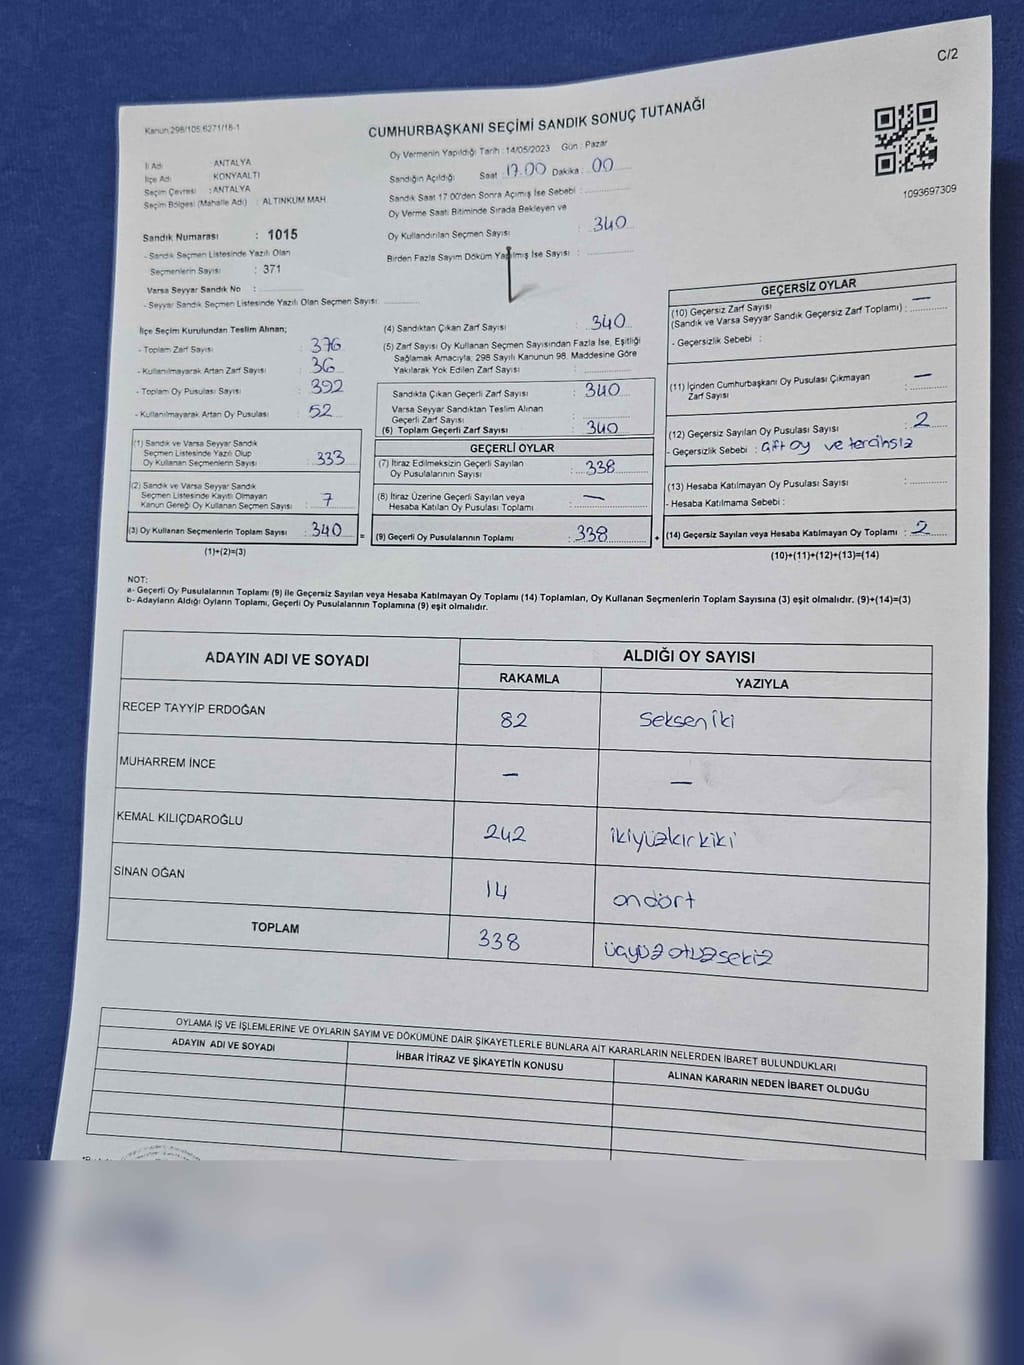 C/2
Kanun:298/105;6271/16-1
CUMHURBAŞKANI SEÇİMİ SANDIK SONUÇ TUTANAĞI
1093697309
İl Adı : ANTALYA
İlçe Adı : KONYAALTI
Seçim Çevresi : ANTALYA
Seçim Bölgesi (Mahalle Adı) : ALTINKUM MAH.
Sandık Numarası : 1015
- Sandık Seçmen Listesinde Yazılı Olan
Seçmenlerin Sayısı : 371
Varsa Seyyar Sandık No :
- Seyyar Sandık Seçmen Listesinde Yazılı Olan Seçmen Sayısı:
Oy Vermenin Yapıldığı Tarih : 14/05/2023 Gün : Pazar
Sandığın Açıldığı Saat : 17.00 Dakika : 00
Sandık Saat 17.00'den Sonra Açılmış İse Sebebi :
Oy Verme Saati Bitiminde Sırada Bekleyen ve
Oy Kullandırılan Seçmen Sayısı : 340
Birden Fazla Sayım Döküm Yapılmış İse Sayısı :
İlçe Seçim Kurulundan Teslim Alınan;
- Toplam Zarf Sayısı : 376
- Kullanılmayarak Artan Zarf Sayısı : 36
- Toplam Oy Pusulası : 392
- Kullanılmayarak Artan Oy Pusulası : 52
(1) Sandık ve Varsa Seyyar Sandık
Seçmen Listesinde Yazılı Olup
Oy Kullanan Seçmenlerin Sayısı : 333
(2) Sandık ve Varsa Seyyar Sandık
Seçmen Listesinde Kayıtlı Olmayan
Kanun Gereği Oy Kullanan Seçmen Sayısı : 7
(3) Oy Kullanan Seçmenlerin Toplam Sayısı : 340 =
(1)+(2)=(3)
(4) Sandıktan Çıkan Zarf Sayısı : 340
(5) Zarf Sayısı Oy Kullanan Seçmen Sayısından Fazla İse, Eşitliği
Sağlamak Amacıyla; 298 Sayılı Kanunun 98. Maddesine Göre
Yakılarak Yok Edilen Zarf Sayısı :
Sandıkta Çıkan Geçerli Zarf Sayısı : 340
Varsa Seyyar Sandıktan Teslim Alınan
Geçerli Zarf Sayısı :
(6) Toplam Geçerli Zarf Sayısı : 340
GEÇERLİ OYLAR
(7) İtiraz Edilmeksizin Geçerli Sayılan
Oy Pusulalarının Sayısı : 338
(8) İtiraz Üzerine Geçerli Sayılan veya
Hesaba Katılan Oy Pusulası Toplamı : —
(9) Geçerli Oy Pusulalarının Toplamı : 338 +
GEÇERSİZ OYLAR
(10) Geçersiz Zarf Sayısı
(Sandık ve Varsa Seyyar Sandık Geçersiz Zarf Toplamı) : —
- Geçersizlik Sebebi :
(11) İçinden Cumhurbaşkanı Oy Pusulası Çıkmayan
Zarf Sayısı : —
(12) Geçersiz Sayılan Oy Pusulası Sayısı : 2
- Geçersizlik Sebebi : çift oy ve tercihsiz
(13) Hesaba Katılmayan Oy Pusulası Sayısı :
- Hesaba Katılmama Sebebi :
(14) Geçersiz Sayılan veya Hesaba Katılmayan Oy Toplamı : 2
(10)+(11)+(12)+(13)=(14)
NOT:
a- Geçerli Oy Pusulalarının Toplamı (9) ile Geçersiz Sayılan veya Hesaba Katılmayan Oy Toplamı (14) Toplamları, Oy Kullanan Seçmenlerin Toplam Sayısına (3) eşit olmalıdır. (9)+(14)=(3)
b- Adayların Aldığı Oyların Toplamı, Geçerli Oy Pusulalarının Toplamına (9) eşit olmalıdır.
ADAYIN ADI VE SOYADI ALDIĞI OY SAYISI
RAKAMLA YAZIYLA
RECEP TAYYİP ERDOĞAN 82 Seksen iki
MUHARREM İNCE — —
KEMAL KILIÇDAROĞLU 242 ikiyüzkırkiki
SİNAN OĞAN 14 ondört
TOPLAM 338 üçyüzotuzsekiz
OYLAMA İŞ VE İŞLEMLERİNE VE OYLARIN SAYIM VE DÖKÜMÜNE DAİR ŞİKAYETLERLE BUNLARA AİT KARARLARIN NELERDEN İBARET BULUNDUKLARI
ADAYIN ADI VE SOYADI İHBAR İTİRAZ VE ŞİKAYETİN KONUSU ALINAN KARARIN NEDEN İBARET OLDUĞU